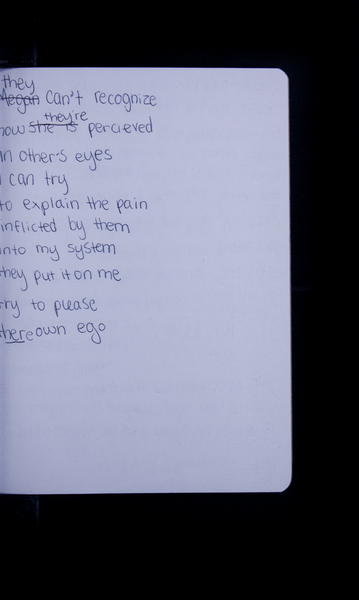 they
Megan can't recognize
they're
how she is percieved
in other's eyes
I can try
to explain the pain
inflicted by them
into my system
they put it on me
try to please
there own ego